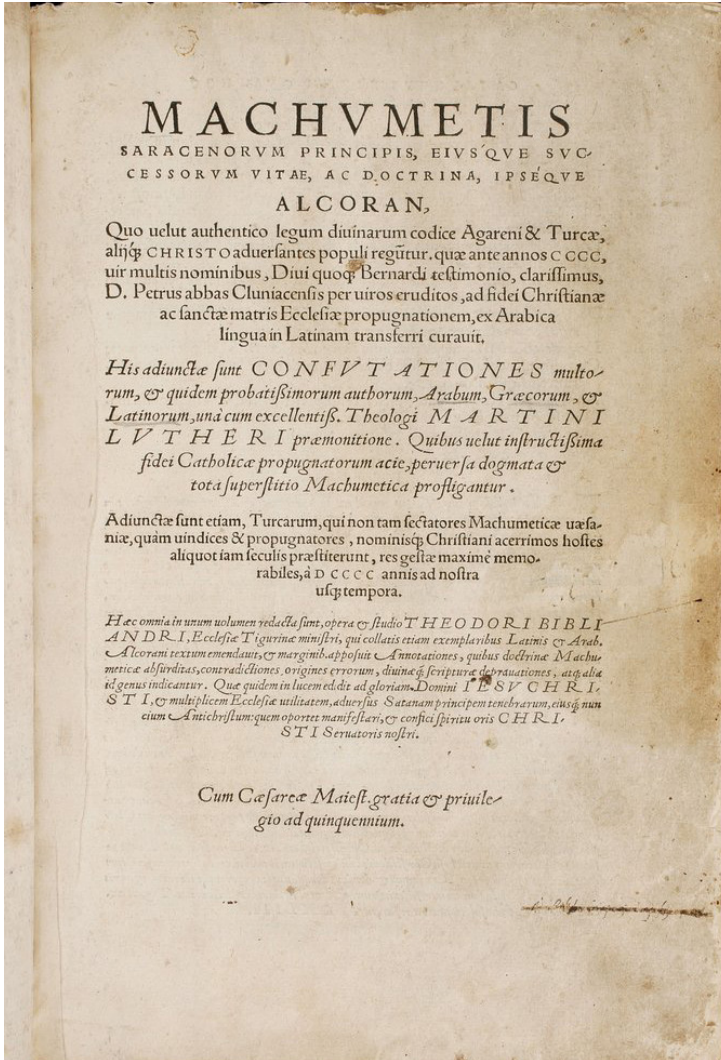 MACHVMETIS
SARACENORVM PRINCIPIS, EIVS'QVE SVC-
CESSORVM VITAE, AC DOCTRINA, IPSE'QVE
ALCORAN,
Quo uelut authentico legum diuinarum codice Agareni & Turcæ,
alijq́; CHRISTO aduerſantes populi regūtur. quæ ante annos CCCC,
uir multis nominibus, Diui quoq; Bernardi teſtimonio, clariſſimus,
D. Petrus abbas Cluniacenſis per uiros eruditos, ad fidei Chriſtianæ
ac ſanctæ matris Eccleſiæ propugnationem, ex Arabica
lingua in Latinam transferri curauit.
His adiunctæ ſunt CONFVTATIONES multo-
rum, & quidem probatißimorum authorum, Arabum, Græcorum, &
Latinorum, unà cum excellentiß. Theologi MARTINI
LVTHERI præmonitione. Quibus uelut inſtructißima
fidei Catholicæ propugnatorum acie, peruerſa dogmata &
tota ſuperſtitio Machumetica profligantur.
Adiunctæ ſunt etiam, Turcarum, qui non tam ſectatores Machumeticæ uæſa-
niæ, quàm uindices & propugnatores, nominisq́; Chriſtiani acerrimos hoſtes
aliquot iam ſeculis præſtiterunt, res geſtæ maximè memo-
rabiles, à DCCCC annis ad noſtra
uſq; tempora.
Hæc omnia in unum uolumen redacta ſunt, opera & ſtudio THEODORI BIBLI-
ANDRI, Eccleſiæ Tigurinæ miniſtri, qui collatis etiam exemplaribus Latinis & Arab.
Alcorani textum emendauit, & marginib. appoſuit Annotationes, quibus doctrinæ Machu-
meticæ abſurditas, contradictiones, origines errorum, diuinæq́; ſcripturæ deprauationes, atq; alia
id genus indicantur. Quæ quidem in lucem edidit ad gloriam Domini IESV CHRI-
STI, & multiplicem Eccleſiæ utilitatem, aduerſus Satanam principem tenebrarum, eiusq́; nun
cium Antichriſtum: quem oportet manifeſtari, & confici ſpiritu oris CHRI-
STI Seruatoris noſtri.
Cum Cæſareæ Maieſt. gratia & priuile-
gio ad quinquennium.